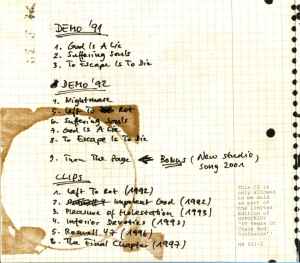 DEMO '91
1. God Is A Lie
2. Suffering Souls
3. To Escape Is To Die
DEMO '92
4. Nightmare
5. Left To Rot
6. Suffering Souls
7. God Is A Lie
8. To Escape Is To Die
9. Turn The Page ← Bonus (New studio song 2001
CLIPS
1. Left To Rot (1992)
2. Impotent God (1992)
3. Pleasure of Molestation (1993)
4. Inferior Devoties (1993)
5. Roswell 47 (1996)
6. The Final Chapter (1997)
This CD is
only allowed
to be sold
as part of
the limited
edition of
HYPOCRISY
"10 Years of
Chaos and
Confusion"